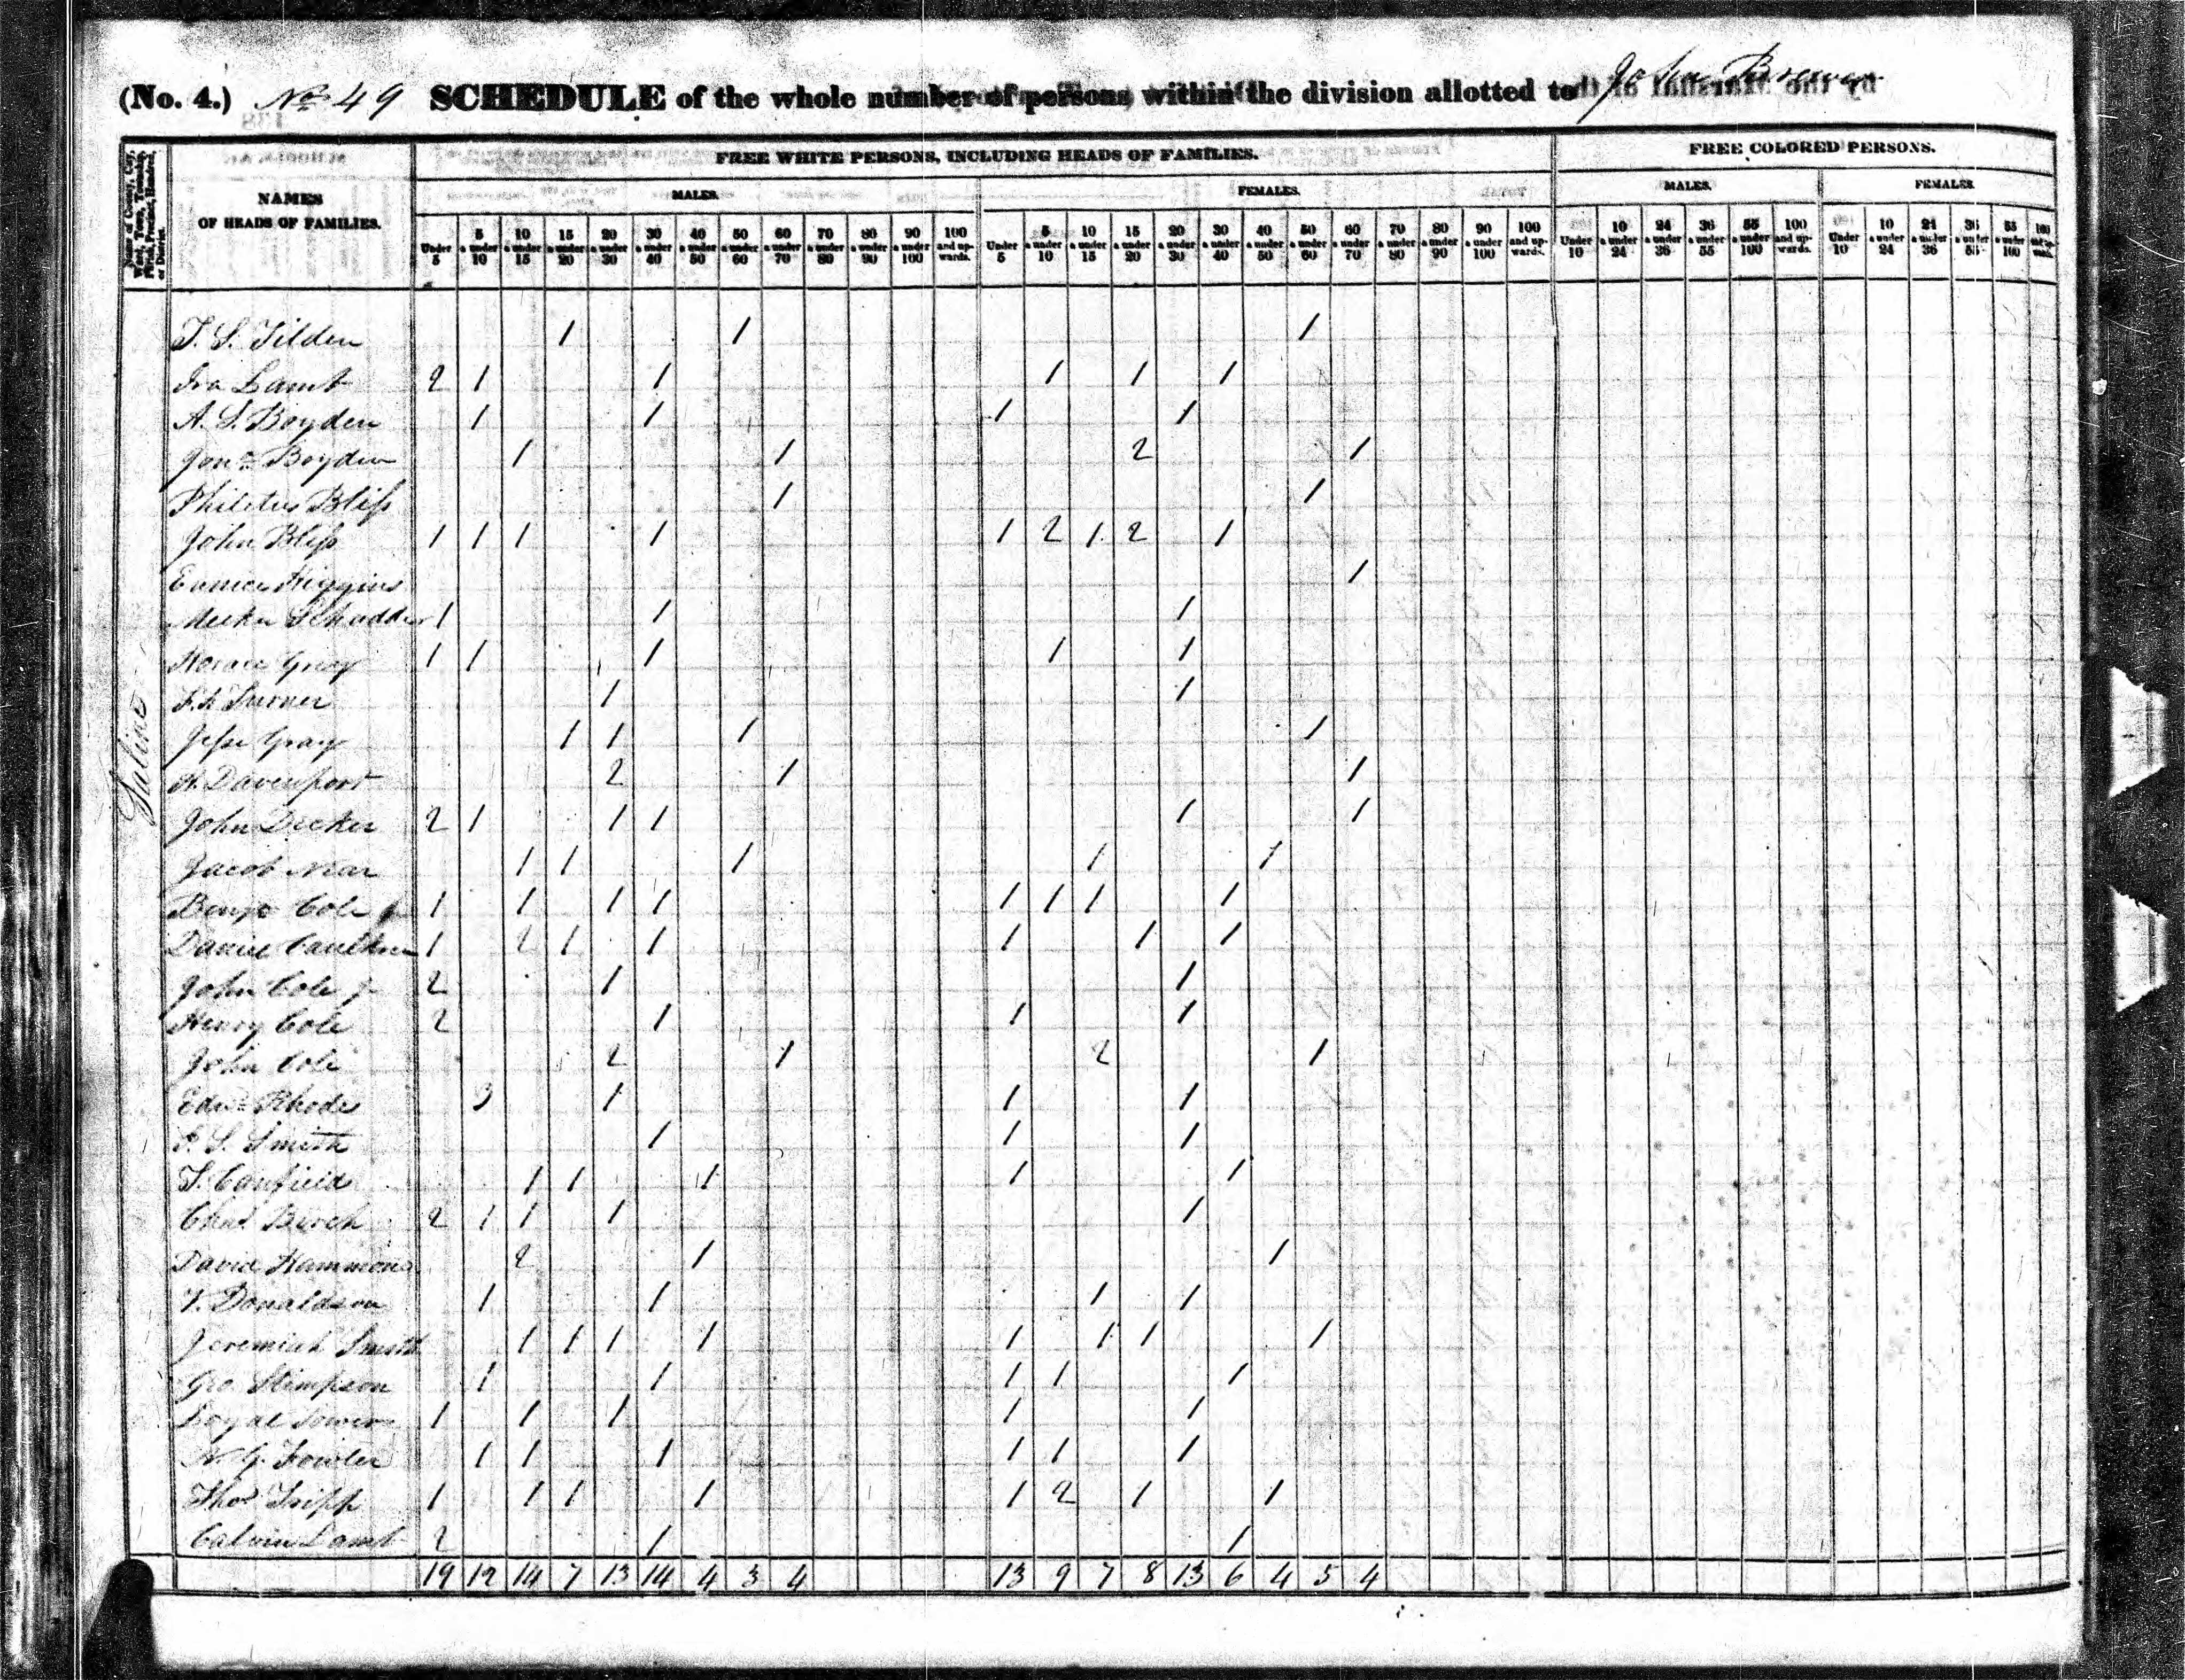 (No. 4.) No 49 SCHEDULE of the whole number of persons within the division allotted to John Brewer
Name of County, City, Ward, Town, Township, Parish, Precinct, Hundred, or District.
NAMES OF HEADS OF FAMILIES.
FREE WHITE PERSONS, INCLUDING HEADS OF FAMILIES.
FREE COLORED PERSONS.
MALES. FEMALES. MALES. FEMALES.
Under 5 | 5 & under 10 | 10 & under 15 | 15 & under 20 | 20 & under 30 | 30 & under 40 | 40 & under 50 | 50 & under 60 | 60 & under 70 | 70 & under 80 | 80 & under 90 | 90 & under 100 | 100 and upwards. | Under 5 | 5 & under 10 | 10 & under 15 | 15 & under 20 | 20 & under 30 | 30 & under 40 | 40 & under 50 | 50 & under 60 | 60 & under 70 | 70 & under 80 | 80 & under 90 | 90 & under 100 | 100 and upwards. | Under 10 | 10 & under 24 | 24 & under 36 | 36 & under 55 | 55 & under 100 | 100 and upwards. | Under 10 | 10 & under 24 | 24 & under 36 | 36 & under 55 | 55 & under 100 | 100 and upwards.
Saline
T. S. Tilden 1 1 1
Ira Lamb 2 1 1 1 1 1
A. S. Boyden 1 1 1 1
Jona Boyden 1 1 2 1
Philetus Bliss 1 1
John Bliss 1 1 1 1 1 2 1 2 1
Eunice Higgins 1
1 1 1
Horace Gray 1 1 1 1 1
Turner 1 1
Jesse Gray 1 1 1 1
H. Davenport 2 1 1
John Decker 2 1 1 1 1 1
Jacob Near 1 1 1 1 1
Benja Cole Jr 1 1 1 1 1 1 1 1
Daniel Caulkins 1 2 1 1 1 1 1
John Cole Jr 2 1 1
Henry Cole 2 1 1 1
John Cole 2 1 2 1
Edwd Rhodes 3 1 1 1
S. Smith 1 1 1
T. Canfield 1 1 1 1 1
Chas Birch 2 1 1 1 1
David Hammond 2 1 1
Donaldson 1 1 1 1
Jeremiah Smith 1 1 1 1 1 1 1 1
Geo Stimpson 1 1 1 1 1
Loyal 1 1 1 1 1
N. G. Fowler 1 1 1 1 1 1
Thos Tripp 1 1 1 1 1 2 1 1
Calvin Lamb 2 1 1
19 12 14 7 13 14 4 3 4 13 9 7 8 13 6 4 5 4